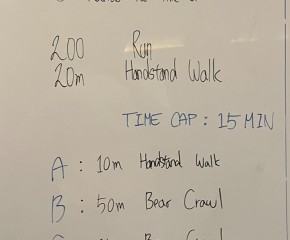 200 Run
20m Handstand Walk
TIME CAP : 15 MIN
A : 10m Handstand Walk
B : 50m Bear Crawl